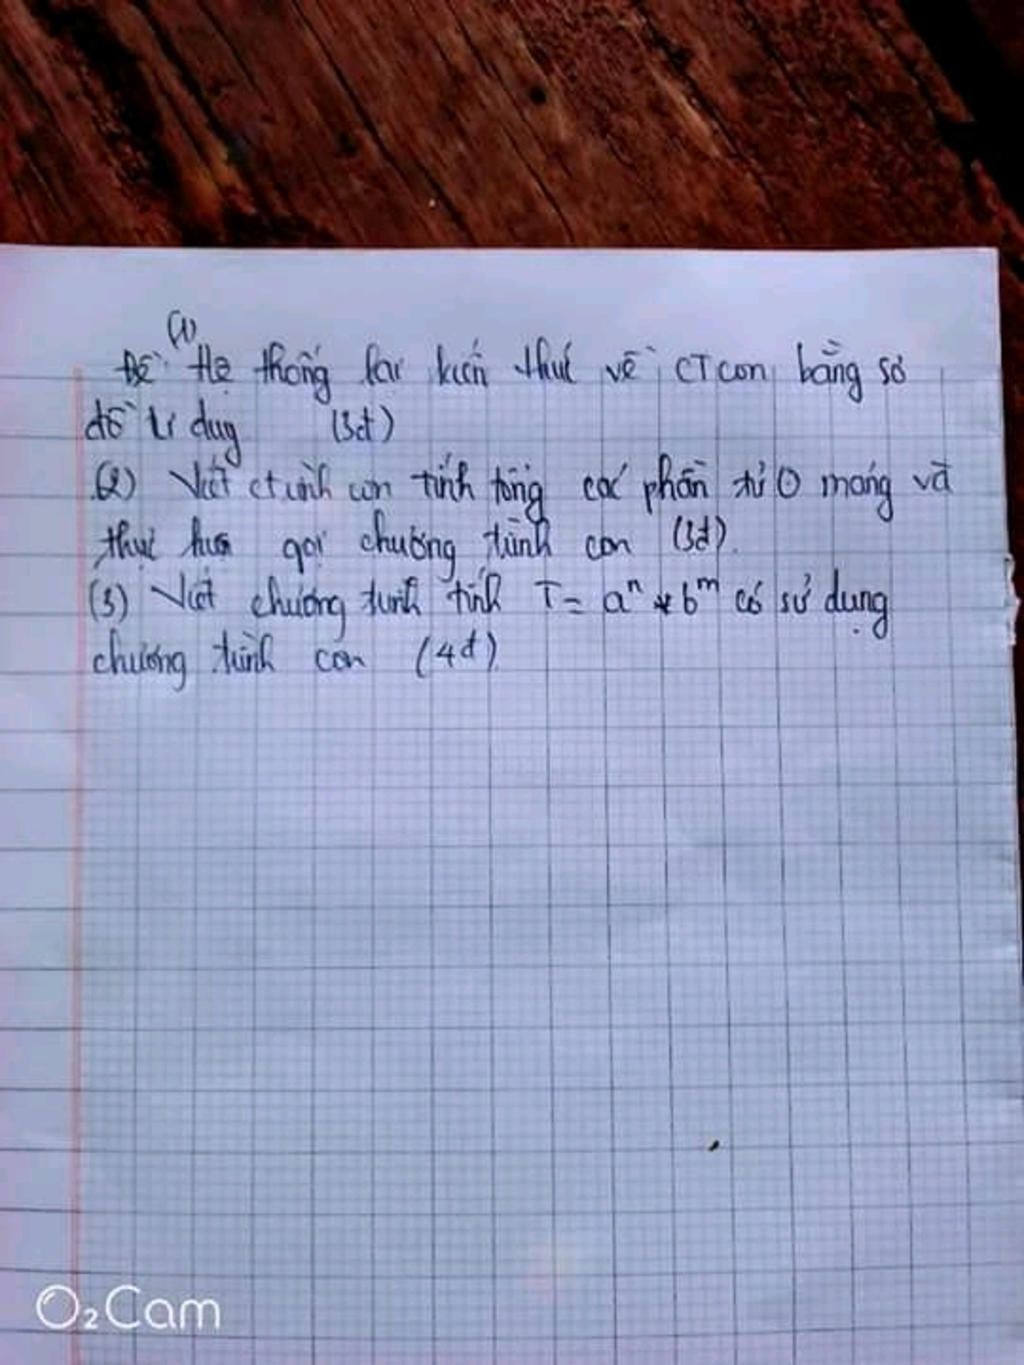 (1)
Đề: Hệ thống lại kiến thức về CT con bằng sơ
đồ tư duy (3đ)
(2) Viết ctrình con tính tổng các phần tử 1 mảng và
thực hiện gọi chương trình con (3đ).
(3) Viết chương trình tính T = aⁿ * bᵐ có sử dụng
chương trình con (4đ)
O₂Cam